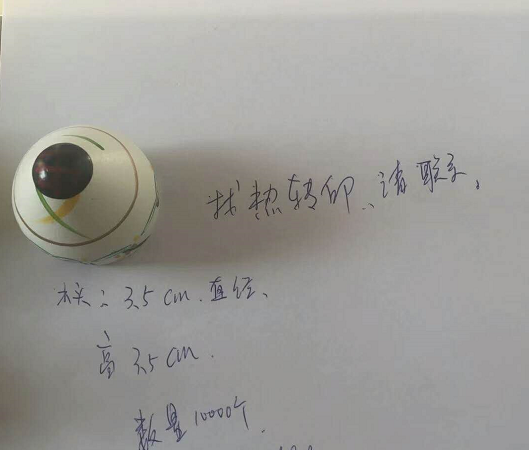 找热转印,请联系,
木头:3.5cm.直径、
高3.5cm.
数量10000个.